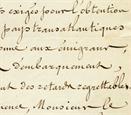 ts exigés pour l'obtention
pays transatlantiques
aux émigrans,
d'embarquement
nt des retards regrettables
Monsieur le